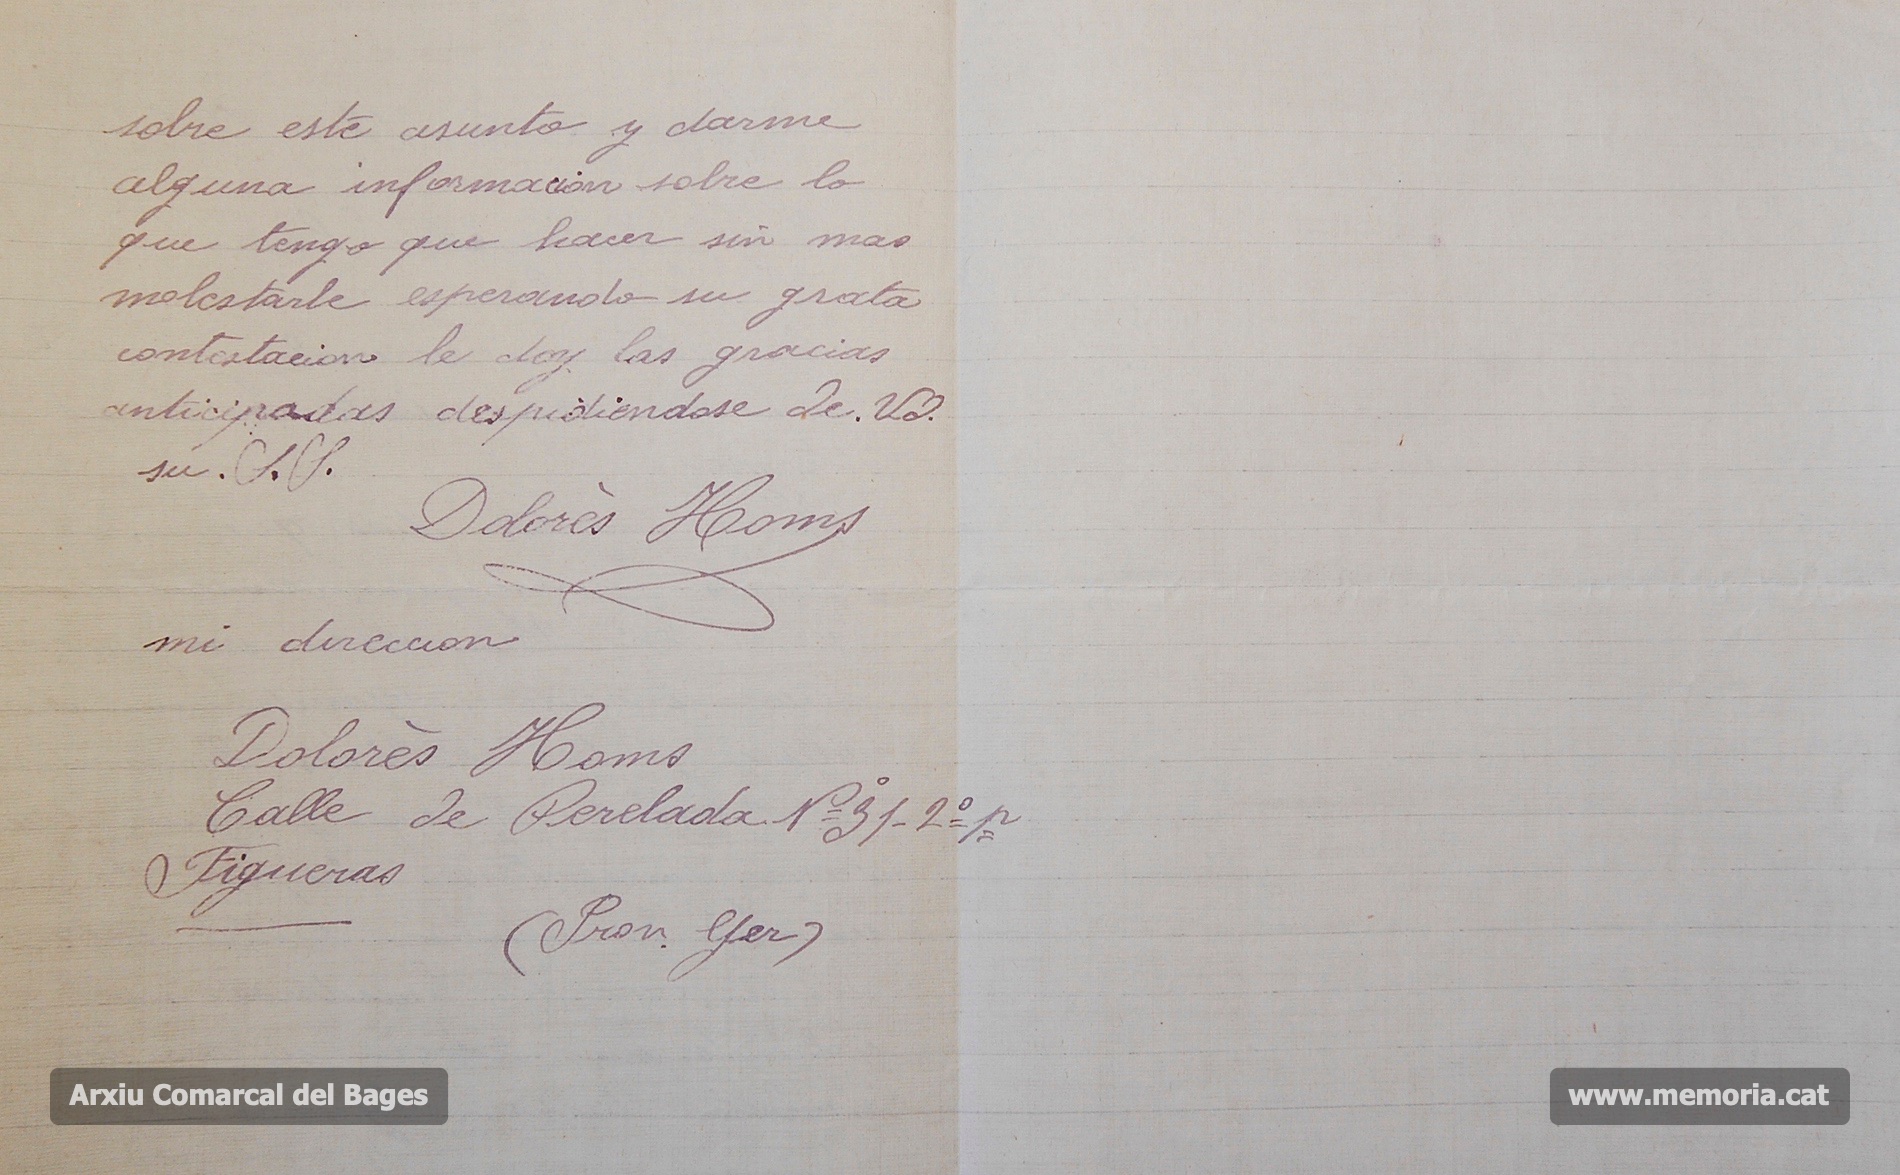 sobre este asunto y darme
alguna informacion sobre lo
que tengo que hacer sin mas
molestarle esperando su grata
contestacion le doy las gracias
anticipadas despidiendose de. VD.
su. S. S.
Dolorès Homs
mi direccion
Dolorès Homs
Calle de Perelada Nº 31-2º-p
Figueras
(Prov. Ger)
Arxiu Comarcal del Bages
www.memoria.cat